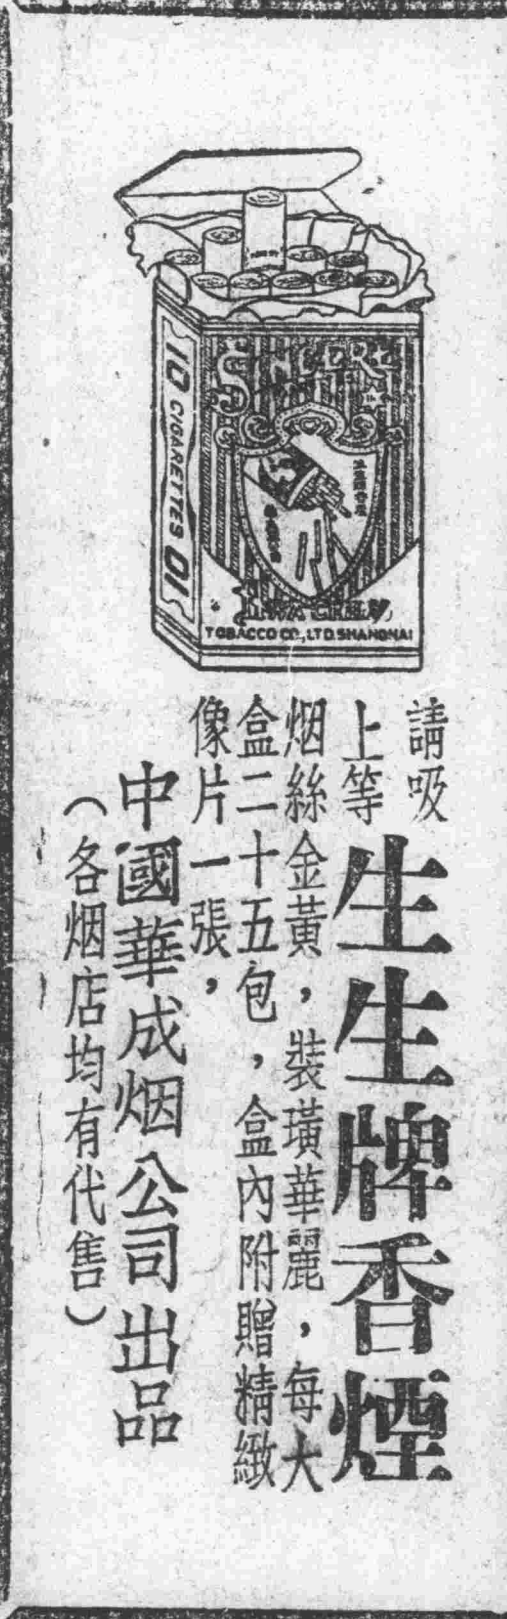 SINCERE
10 CIGARETTES 10
TOBACCO CO., LTD. SHANGHAI
請吸
上等生生牌香煙
烟絲金黃，裝璜華麗，每大
盒二十五包，盒內附贈精緻
像片一張，
中國華成烟公司出品
（各烟店均有代售）